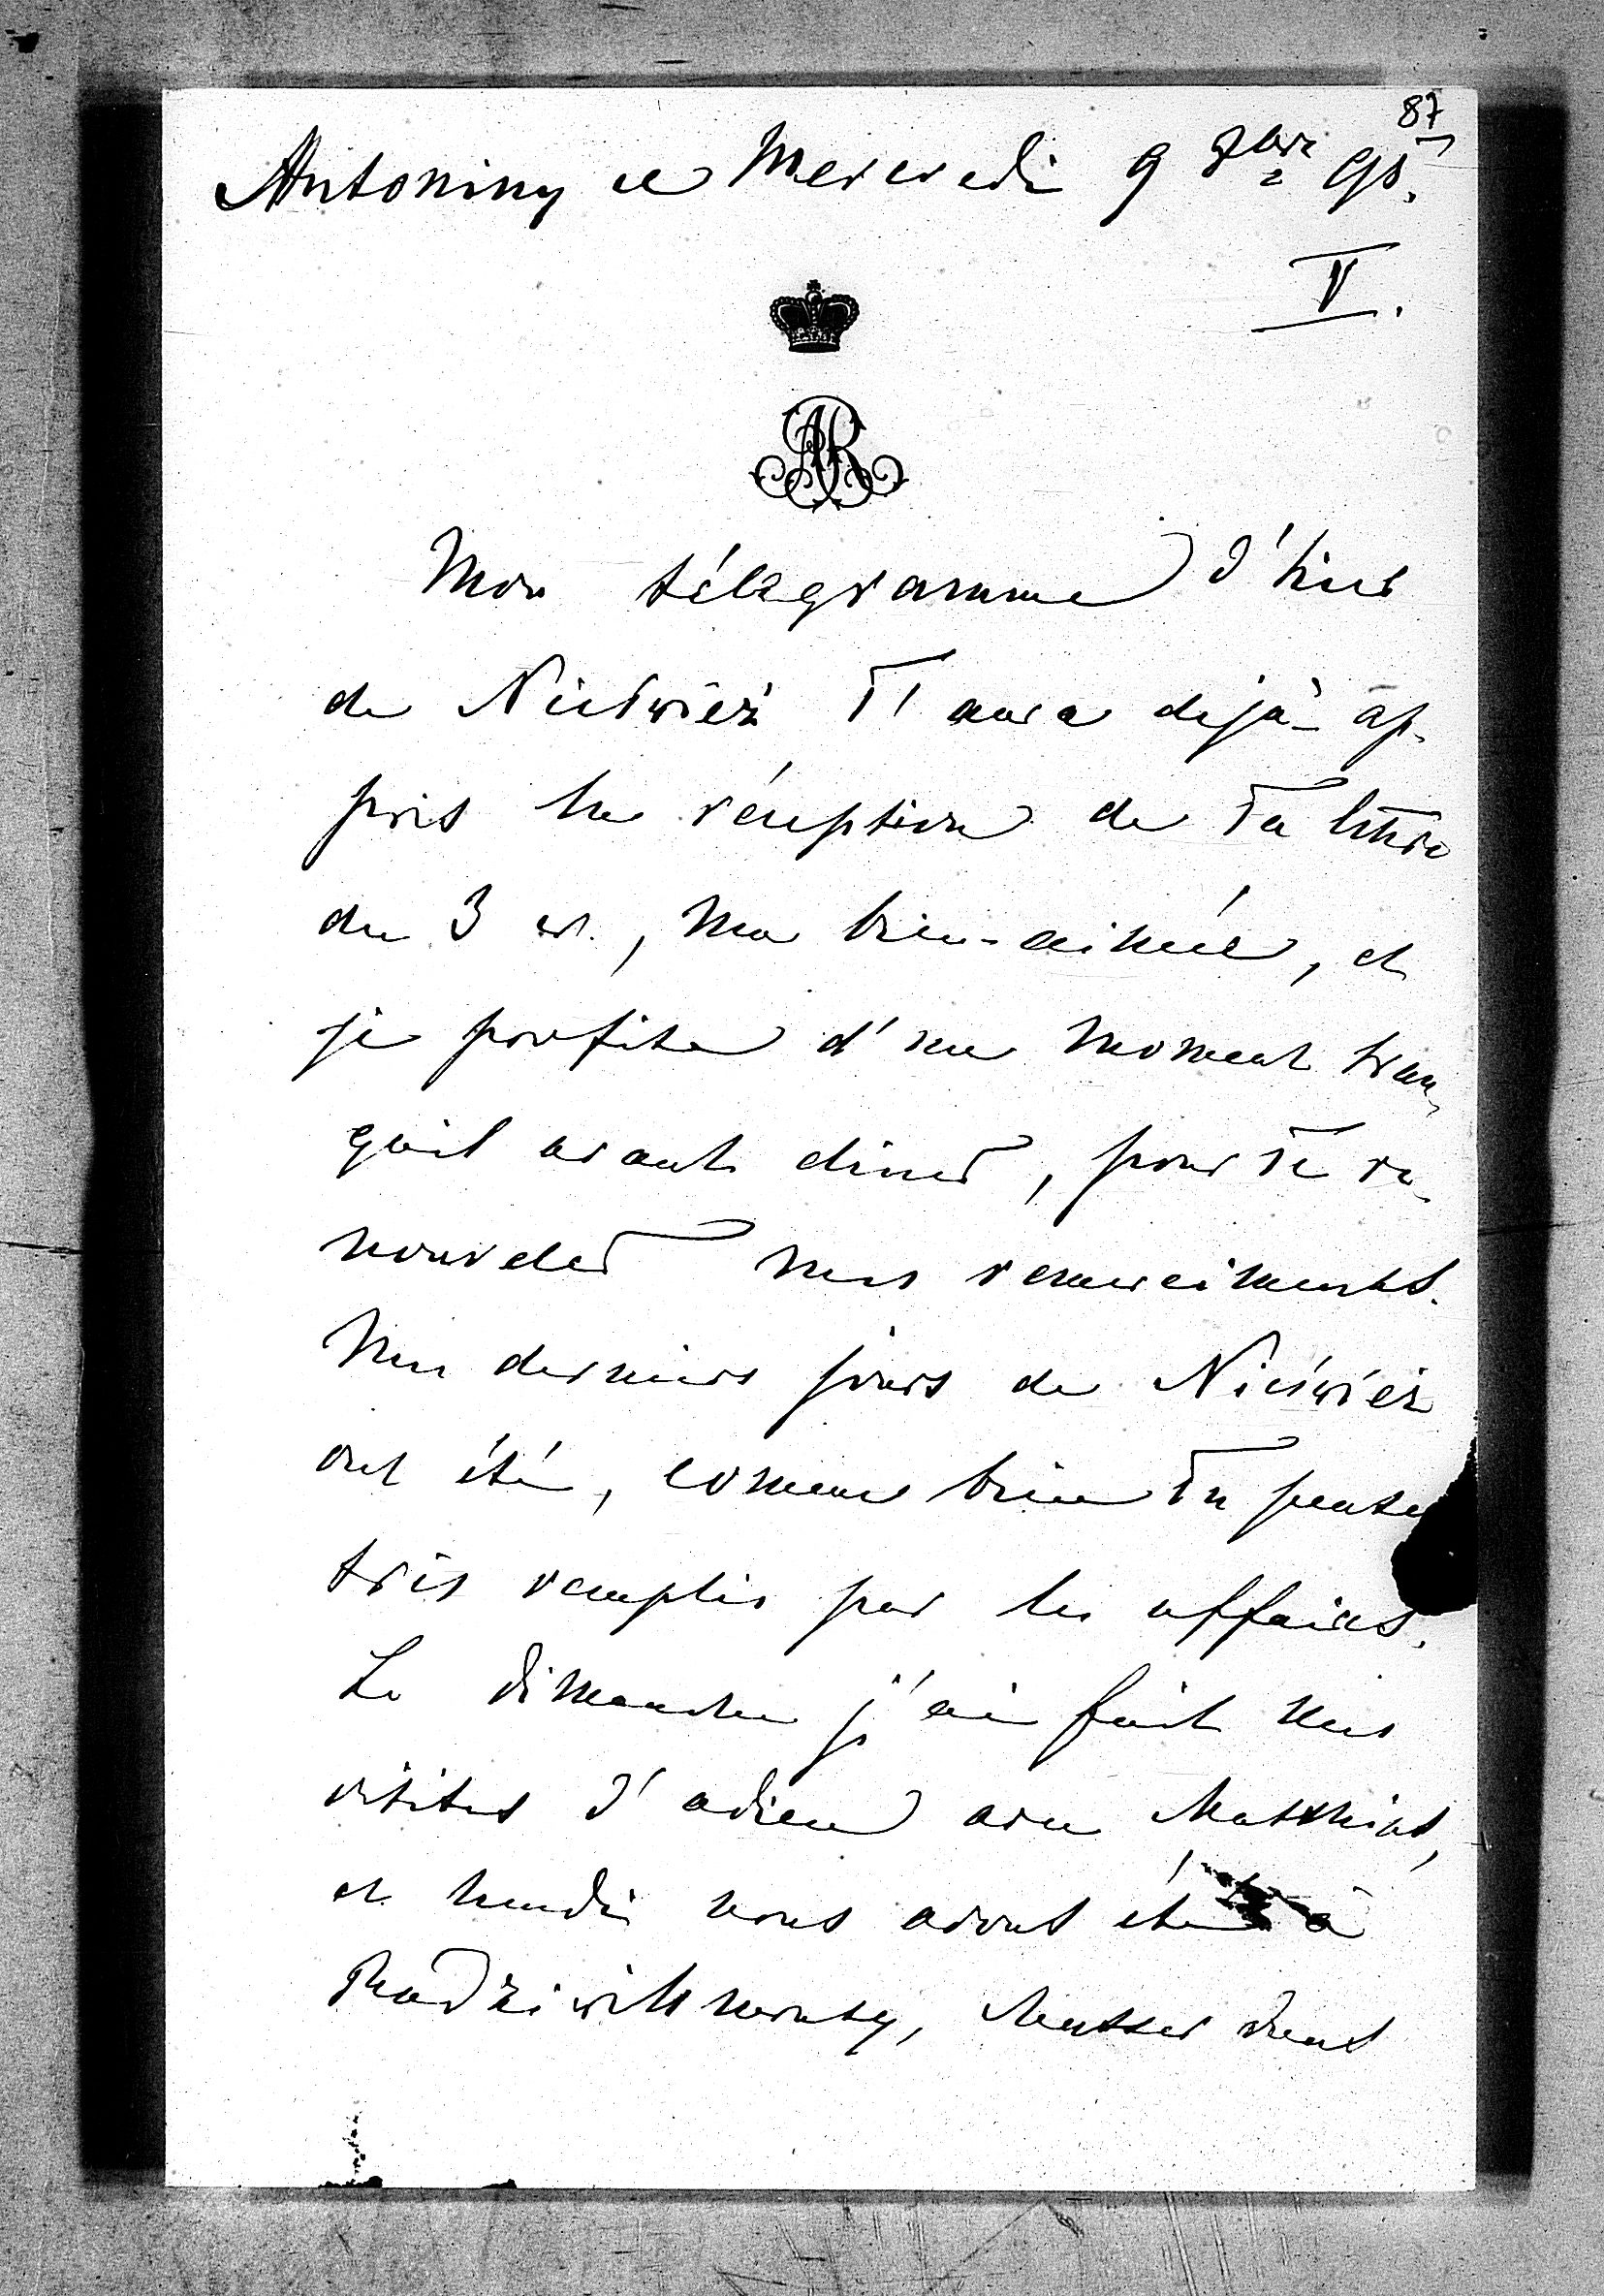 87
Antoniny ce Mercredi 9 9bre 98.
V.
AR
Mon télégramme d'hier
de Nieśwież T'aura dejà ap-
pris la réception de Ta lettre
du 3 cr., ma bien-aimée, et
je profite d'un moment tran-
quil avant diner, pour Te re-
nouveler mes remerciments.
Mes derniers jours de Nieśwież
ont été, comme bien Tu penses
très remplis par les affaires.
Le dimanche j'ai fait mes
visites d'adieu avec Matthias,
et lundi nous avons été à
Radziwillmonty, dont